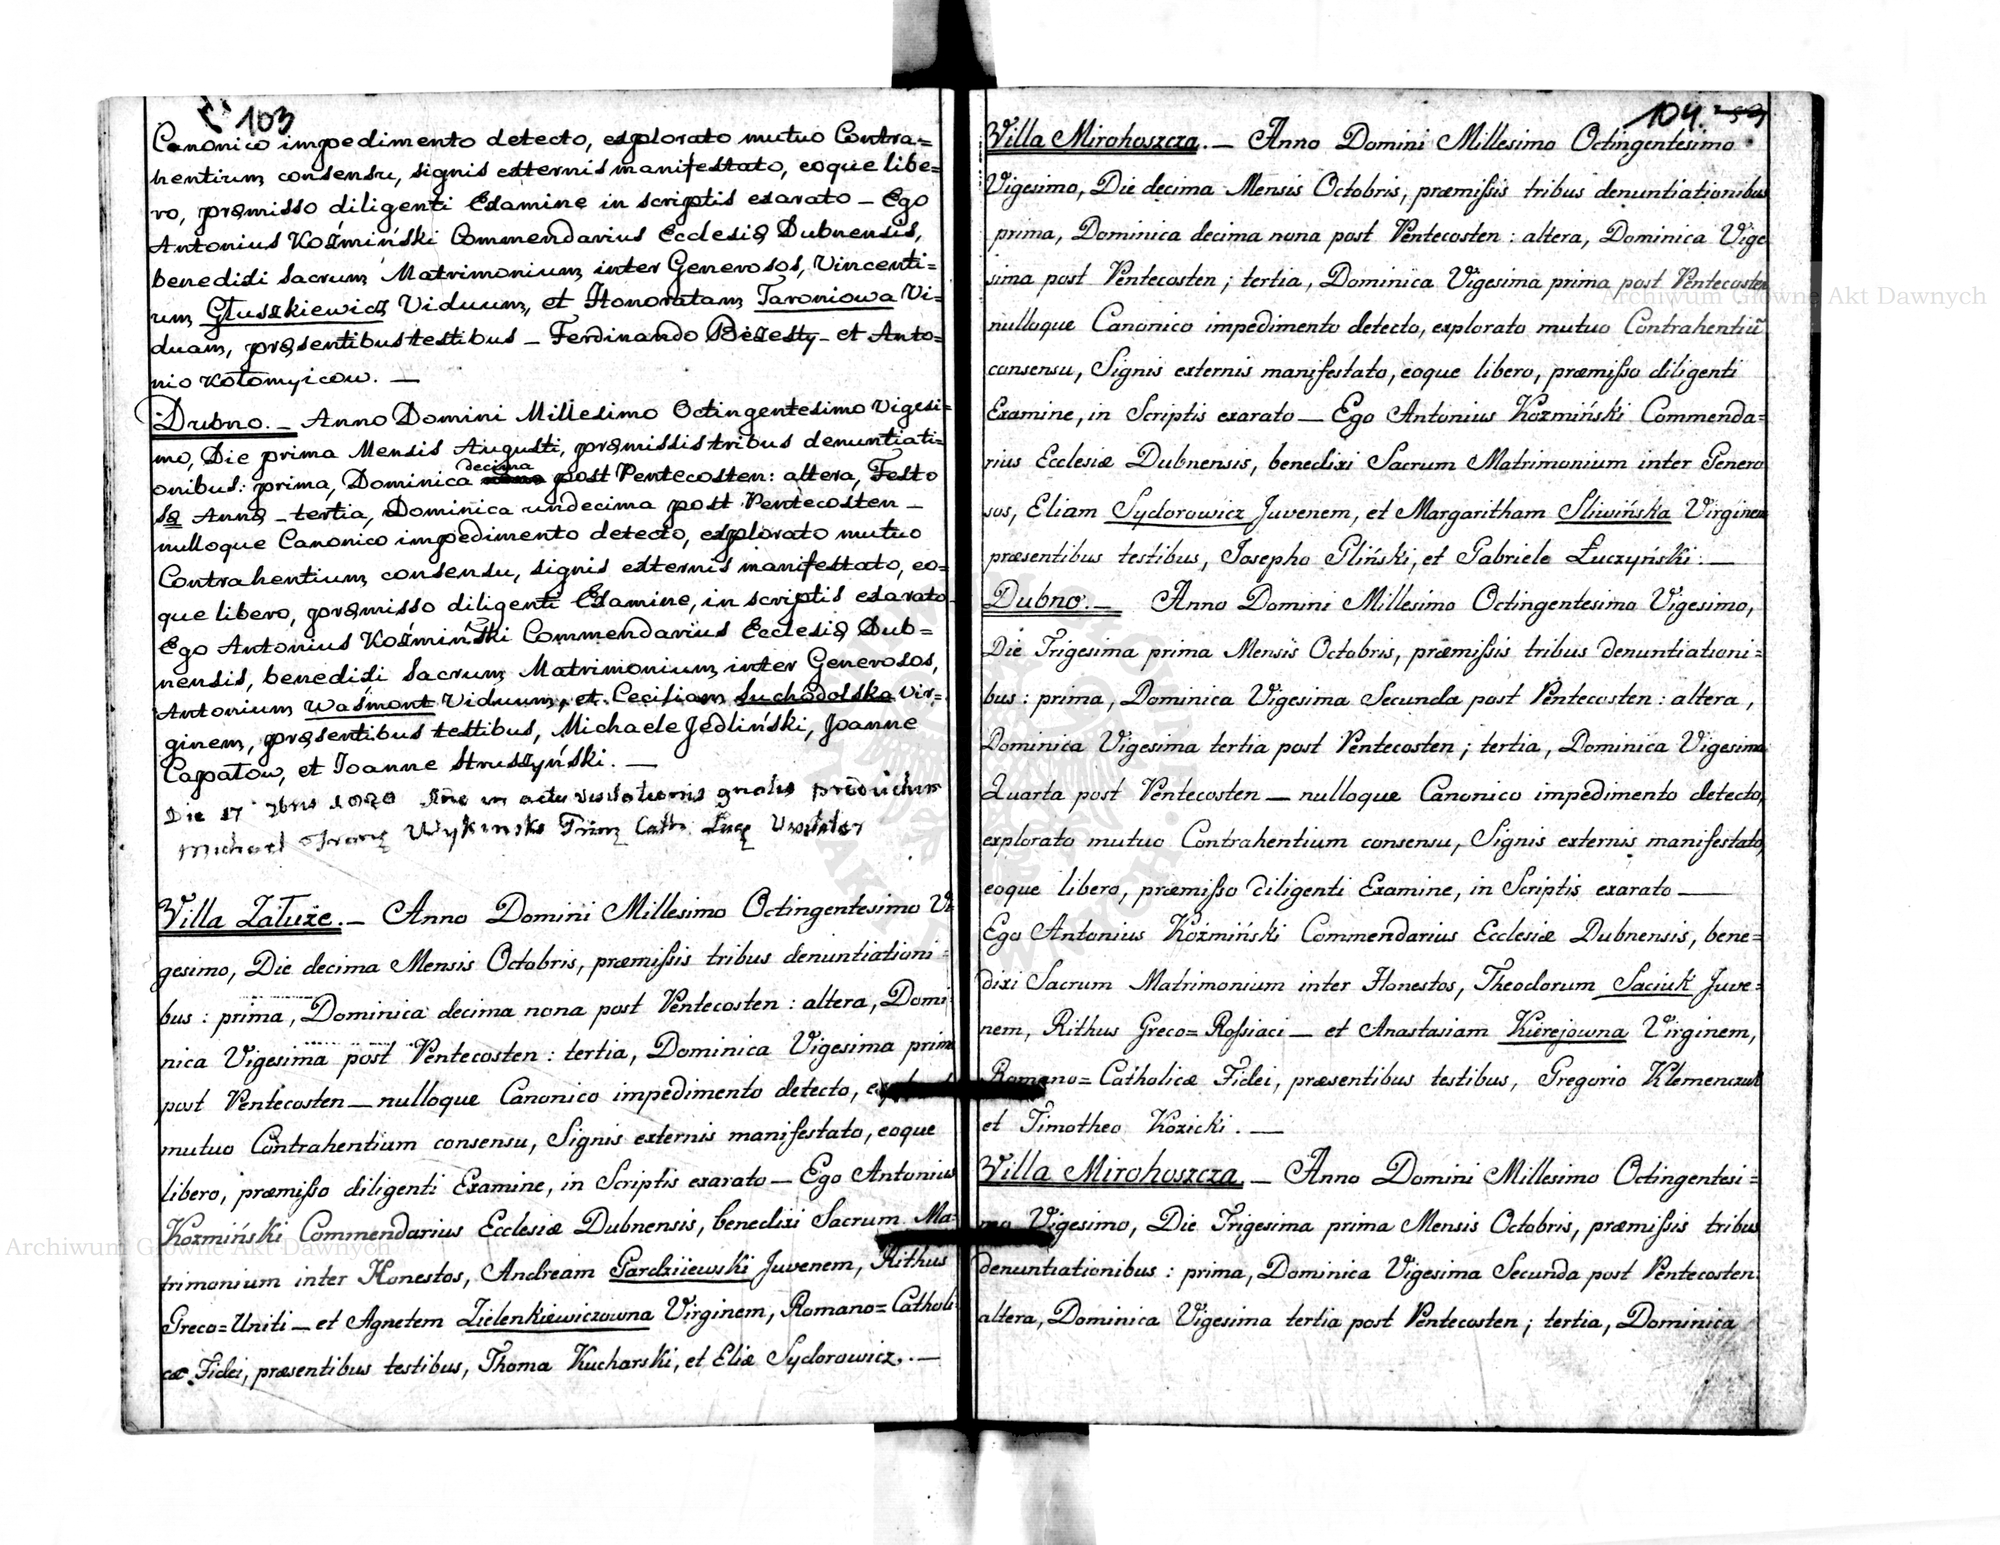 103
Canonico impedimento detecto, explorato mutuo Contra=
hentium consensu, signis externis manifestato, eoque libe=
ro, præmisso diligenti Examine in scriptis exarato – Ego
Antonius Koźmiński Commendarius Ecclesiæ Dubnensis,
benedixi Sacrum Matrimonium inter Generosos, Vincenti=
um Głuszkiewicz Viduum, et Honoratam Taroniowa Vi=
duam, præsentibus testibus – Ferdinando – et Anto=
nio Kołomyicow. —
Dubno. – Anno Domini Millesimo Octingentesimo Vigesi=
mo, Die prima Mensis Augusti, præmissis tribus denuntiati=
onibus: prima, Dominica decima post Pentecosten: altera, Festo
Sæ Annæ – tertia, Dominica undecima post Pentecosten –
nulloque Canonico impedimento detecto, explorato mutuo
Contrahentium consensu, signis externis manifestato, eo=
que libero, præmisso diligenti Examine, in scriptis exarato
Ego Antonius Koźmiński Commendarius Ecclesiæ Dub=
nensis, benedixi Sacrum Matrimonium inter Generosos,
Antonium Waśmont Viduum, et Ceciliam Suchodolska Vir=
ginem, præsentibus testibus, Michaele Jedliński, Joanne
Capatow, et Joanne Struszyński. —
Die 17 1820 in actu visitationis producitur
Michael Visitator
Villa Załuże. – Anno Domini Millesimo Octingentesimo Vi=
gesimo, Die decima Mensis Octobris, præmißis tribus denuntiationi=
bus: prima, Dominica decima nona post Pentecosten: altera, Domi=
nica Vigesima post Pentecosten: tertia, Dominica Vigesima prima
post Pentecosten – nulloque Canonico impedimento detecto,
mutuo Contrahentium consensu, Signis externis manifestato, eoque
libero, præmißo diligenti Examine, in Scriptis exarato – Ego Antonius
Kozmiński Commendarius Ecclesiæ Dubnensis, benedixi Sacrum Ma=
trimonium inter Honestos, Andream Gardziiewski Juvenem, Rithus
Greco=Uniti – et Agnetem Zielenkiewiczowna Virginem, Romano=Catholi=
cæ Fidei, præsentibus testibus, Thoma Kucharski, et Eliæ Sydorowicz. —
104
Villa Mirohoszcza. – Anno Domini Millesimo Octingentesimo
Vigesimo, Die decima Mensis Octobris, præmißis tribus denuntiationibus
prima, Dominica decima nona post Pentecosten: altera, Dominica Vige
sima post Pentecosten; tertia, Dominica Vigesima prima post Pentecosten
nulloque Canonico impedimento detecto, explorato mutuo Contrahentiū
consensu, Signis externis manifestato, eoque libero, præmißo diligenti
Examine, in Scriptis exarato – Ego Antonius Kozmiński Commenda=
rius Ecclesiæ Dubnensis, benedixi Sacrum Matrimonium inter Genero
sos, Eliam Sydorowicz Juvenem, et Margaritham Sliwińska Virginem
præsentibus testibus, Josepho Gliński, et Gabriele Łuczyński. —
Dubno. – Anno Domini Millesimo Octingentesimo Vigesimo,
Die Trigesima prima Mensis Octobris, præmißis tribus denuntiationi=
bus: prima, Dominica Vigesima Secunda post Pentecosten: altera,
Dominica Vigesima tertia post Pentecosten; tertia, Dominica Vigesima
Quarta post Pentecosten – nulloque Canonico impedimento detecto,
explorato mutuo Contrahentium consensu, Signis externis manifestato,
eoque libero, præmißo diligenti Examine, in Scriptis exarato —
Ego Antonius Kozmiński Commendarius Ecclesiæ Dubnensis, bene=
dixi Sacrum Matrimonium inter Honestos, Theodorum Saciuk Juve=
nem, Rithus Greco=Roßiaci – et Anastasiam Kierejowna Virginem,
Romano=Catholicæ Fidei, præsentibus testibus, Gregorio Klemenczuk
et Timotheo Kozicki. —
Villa Mirohoszcza. – Anno Domini Millesimo Octingentesi=
mo Vigesimo, Die Trigesima prima Mensis Octobris, præmißis tribus
denuntiationibus: prima, Dominica Vigesima Secunda post Pentecosten:
altera, Dominica Vigesima tertia post Pentecosten; tertia, Dominica
Archiwum Główne Akt Dawnych
Archiwum Główne Akt Dawnych